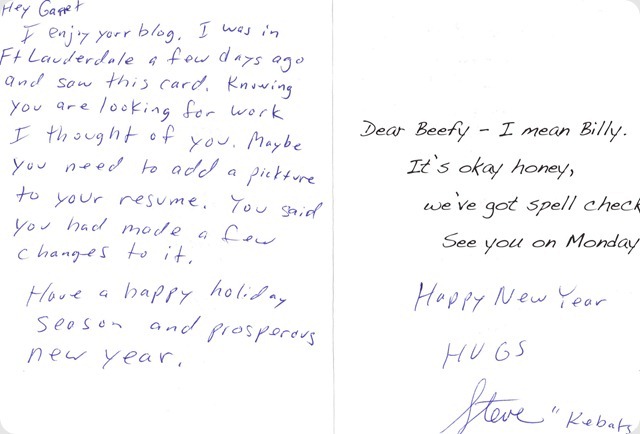 Hey Garret
I enjoy your blog. I was in
Ft Lauderdale a few days ago
and saw this card. Knowing
you are looking for work
I thought of you. Maybe
you need to add a pickture
to your resume. You said
you had made a few
changes to it.
Have a happy holiday
season and prosperous
new year.
Dear Beefy – I mean Billy.
It's okay honey,
we've got spell check
See you on Monday
Happy New Year
HUGS
Steve " Kebabs